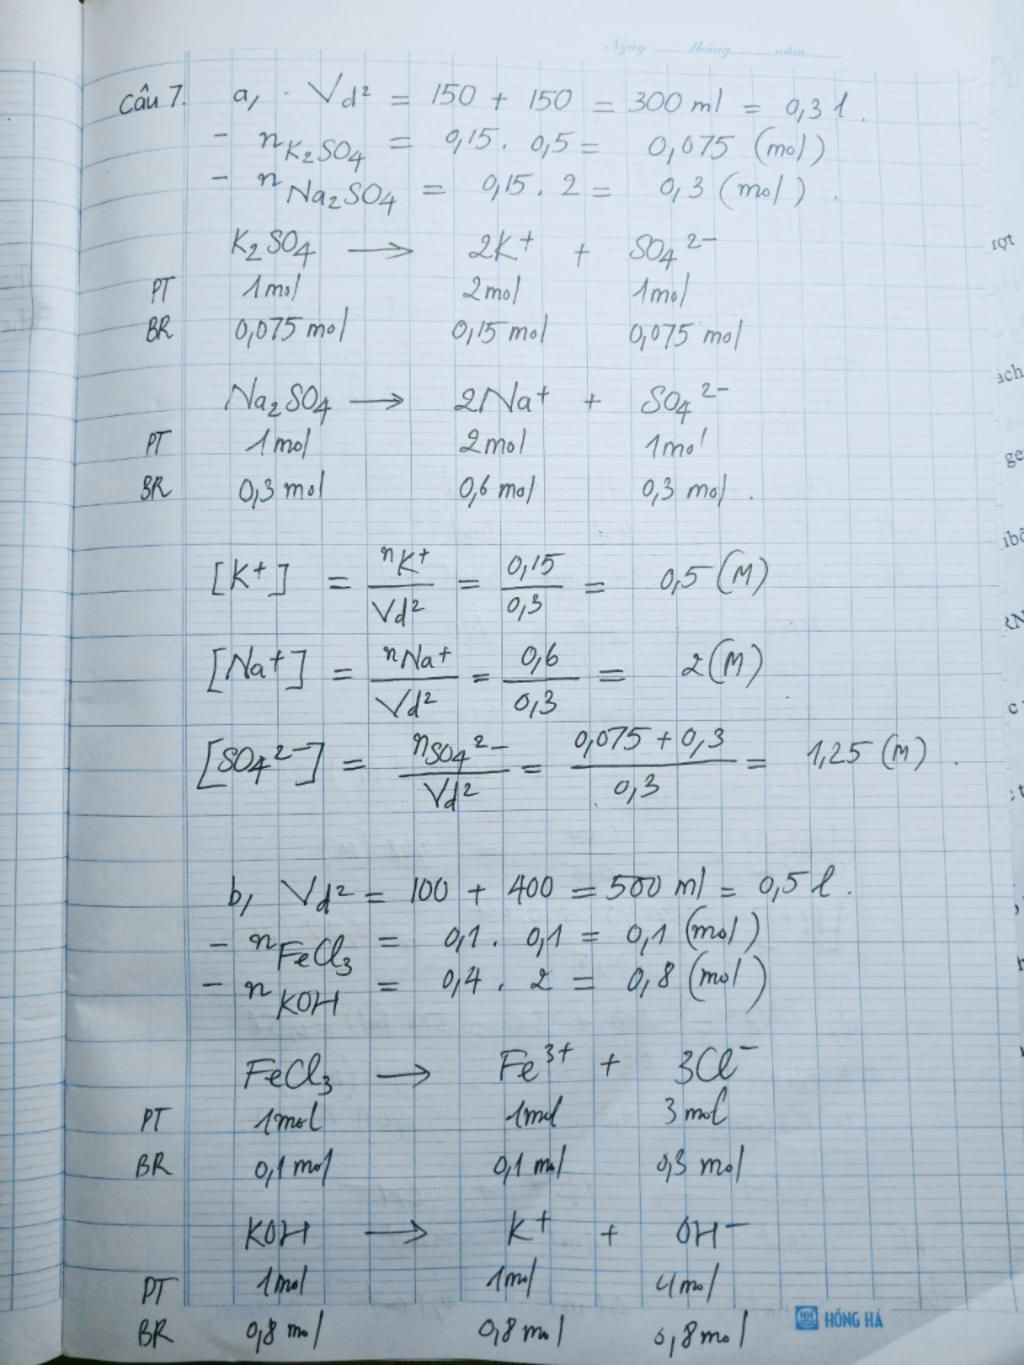 Ngày ........tháng........năm........
Câu 7. a, . Vd² = 150 + 150 = 300 ml = 0,3 l.
- nK₂SO₄ = 0,15. 0,5 = 0,075 (mol)
- nNa₂SO₄ = 0,15. 2 = 0,3 (mol).
K₂SO₄ → 2K⁺ + SO₄²⁻
PT 1mol 2mol 1mol
BR 0,075 mol 0,15 mol 0,075 mol
Na₂SO₄ → 2Na⁺ + SO₄²⁻
PT 1mol 2mol 1mol
BR 0,3 mol 0,6 mol 0,3 mol.
[K⁺] = nK⁺/Vd² = 0,15/0,3 = 0,5 (M)
[Na⁺] = nNa⁺/Vd² = 0,6/0,3 = 2(M)
[SO₄²⁻] = nSO₄²⁻/Vd² = 0,075 + 0,3/0,3 = 1,25 (M).
b, Vd² = 100 + 400 = 500 ml = 0,5 l.
- nFeCl₃ = 0,1. 0,1 = 0,1 (mol)
- nKOH = 0,4. 2 = 0,8 (mol)
FeCl₃ → Fe³⁺ + 3Cl⁻
PT 1mol 1mol 3 mol
BR 0,1 mol 0,1 mol 0,3 mol
KOH → K⁺ + OH⁻
PT 1mol 1mol 1mol
BR 0,8 mol 0,8 mol 0,8 mol
HỒNG HÀ